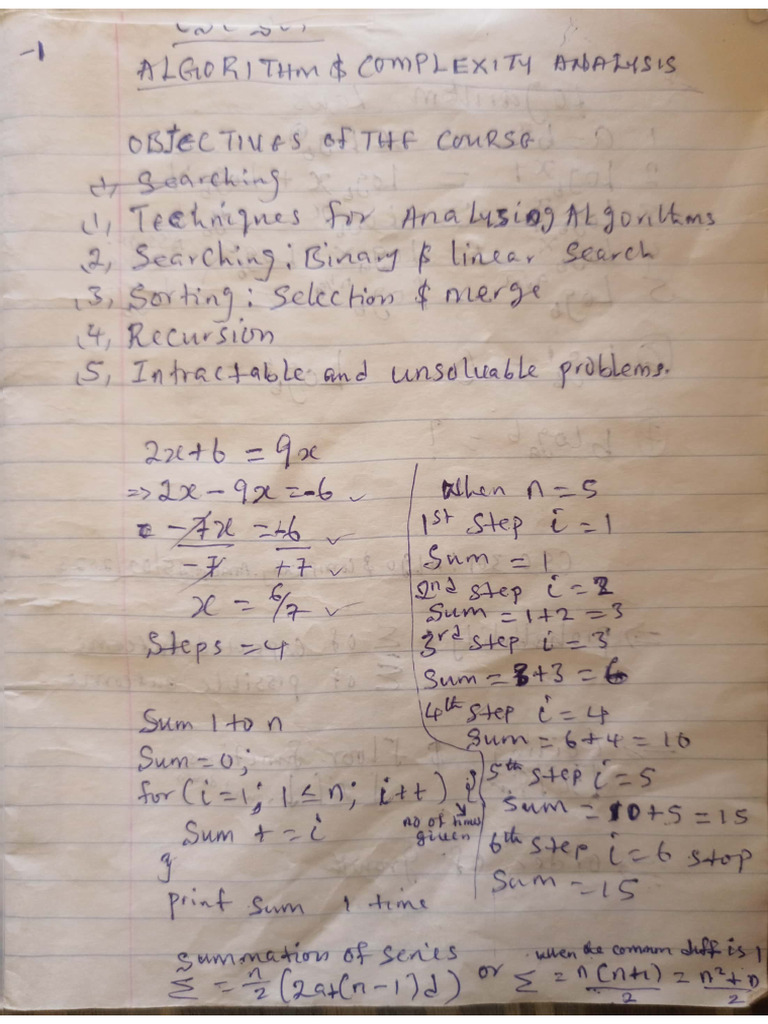 -1
ALGORITHM & COMPLEXITY ANALYSIS
OBJECTIVES OF THE COURSE
1, Searching
1, Techniques for Analysing Algorithms
2, Searching: Binary & linear Search
3, Sorting: Selection & merge
4, Recursion
5, Intractable and unsoluable problems.
2x+6 = 9x
=> 2x - 9x = -6 ✓
-7x = +6 ✓
-7 +7 ✓
x = 6/7 ✓
Steps = 4
Sum 1 to n
Sum = 0;
for (i=1; 1≤n; i++) {
no of times given
Sum += i
}
print sum 1 time
When n = 5
1st Step i = 1
Sum = 1
2nd step i = 2
Sum = 1+2 = 3
3rd step i = 3
Sum = 3+3 = 6
4th Step i = 4
Sum = 6+4 = 10
5th step i = 5
Sum = 10+5 = 15
6th Step i = 6 stop
Sum = 15
Summation of series
Σ = n/2 (2a+(n-1)d) or Σ = n(n+1)/2 = n²+n/2
when the common diff is 1